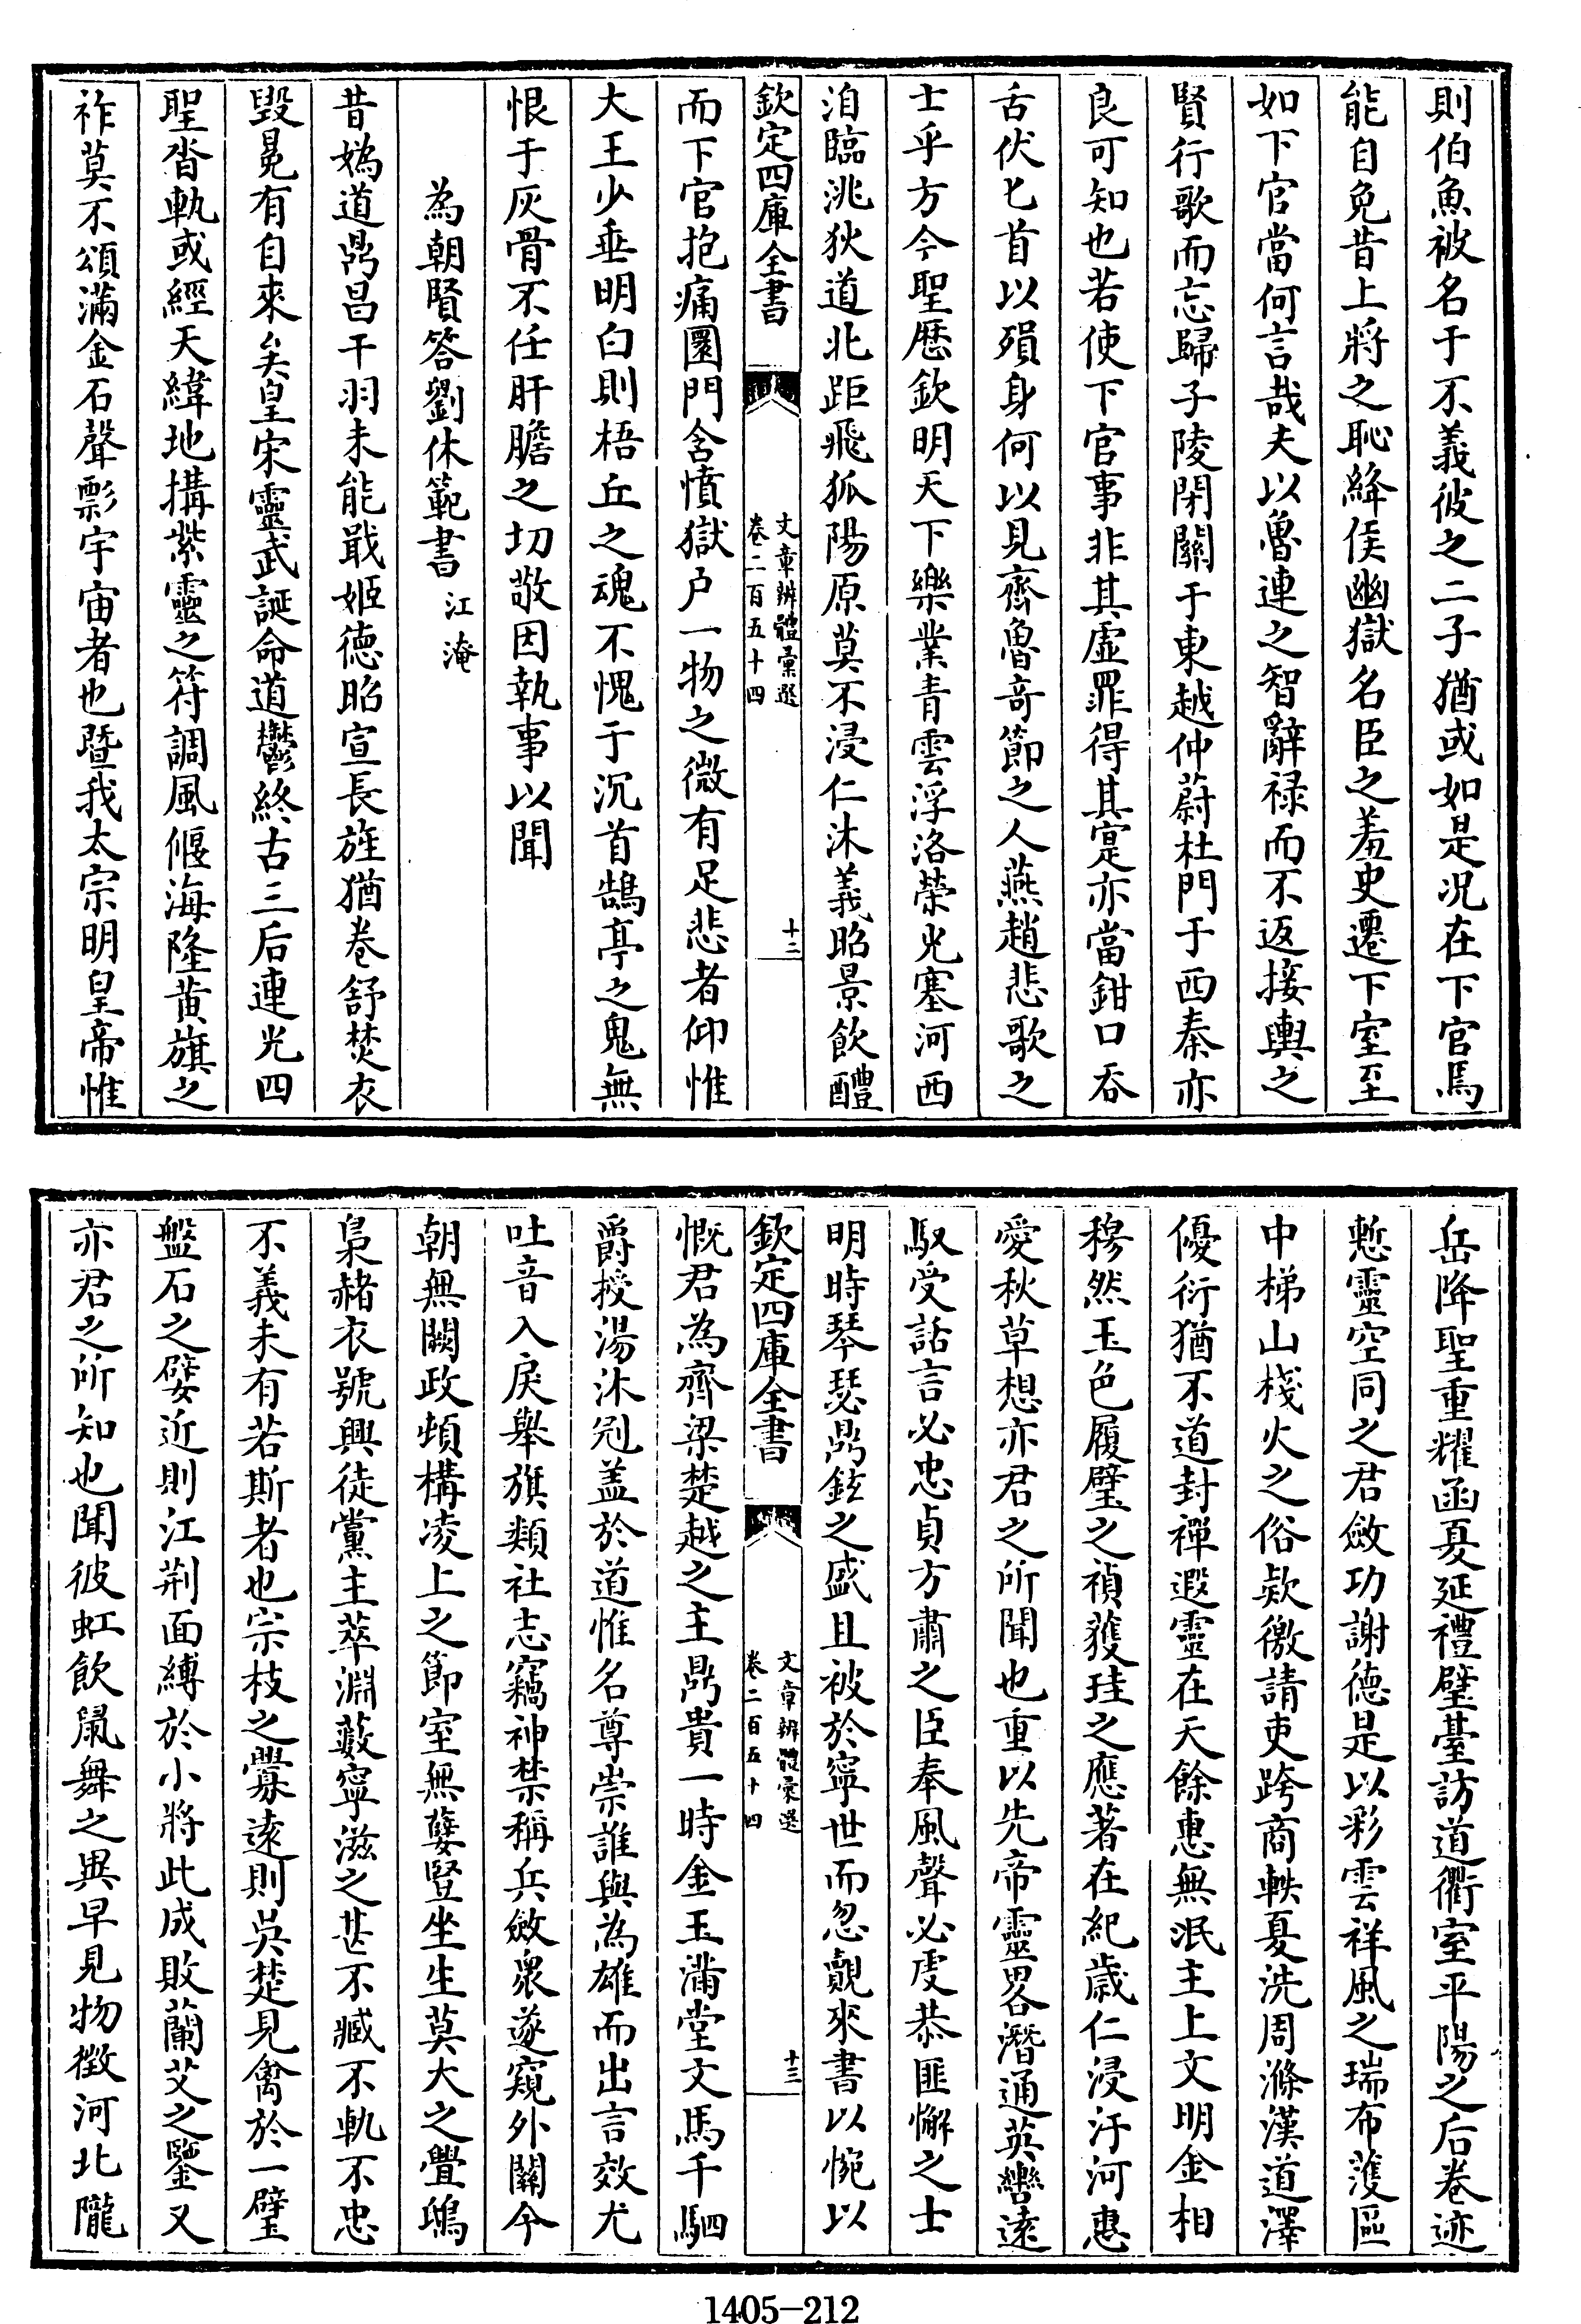 則伯魚被名于不義彼之二子猶或如是况在下官焉
能自免昔上將之恥絳侯幽獄名臣之羞史遷下室至
如下官當何言哉夫以魯連之智辭禄而不返接輿之
賢行歌而忘歸子陵閉關于東越仲蔚杜門于西秦亦
良可知也若使下官事非其虛罪得其寔亦當鉗口吞
舌伏匕首以殞身何以見齊魯奇節之人燕趙悲歌之
士乎方今聖歴欽明天下樂業青雲浮洛榮光塞河西
洎臨洮狄道北距飛狐陽原莫不浸仁沐義昭景飲醴
欽定四庫全書
文章辨體彙選
卷二百五十四
十二
而下官抱痛圜門含憤獄户一物之微有足悲者仰惟
大王少垂明白則梧丘之魂不愧于沉首鵠亭之鬼無
恨于灰骨不任肝膽之切敬因執事以聞
為朝賢答劉休範書 江淹
昔媯道鼎昌干羽未能戢姬德昭宣長旌猶卷舒焚衣
毁冕有自來矣皇宋靈武誕命道鬱終古三后連光四
聖沓軌或經天緯地搆紫靈之符調風偃海隆黄旗之
祚莫不頌滿金石聲彯宇宙者也暨我太宗明皇帝惟
岳降聖重耀函夏延禮璧臺訪道衢室平陽之后卷迹
慙靈空同之君斂功謝德是以彩雲祥風之瑞布濩區
中梯山棧火之俗欵徼請吏跨商軼夏洗周滌漢道澤
優衍猶不道封禪遐靈在天餘惠無泯主上文明金相
穆然玉色履璧之禎䕶珪之應著在紀歲仁浸汙河惠
愛秋草想亦君之所聞也重以先帝靈畧潛通英轡遠
馭受話言必忠貞方肅之臣奉風聲必虔恭匪懈之士
明時琴瑟鼎鉉之盛且被於寧世而忽覿來書以惋以
欽定四庫全書
文章辨體彙選
卷二百五十四
十三
慨君為齊梁楚越之主鼎貴一時金玉滿堂文馬千駟
爵授湯沐冠盖於道惟名尊崇誰與為雄而出言效尤
吐音入戾舉旗類社志竊神禁稱兵斂衆遂窺外關今
朝無闕政頓構凌上之節室無孽豎坐生莫大之舋鴟
梟赭衣號興徒黨主萃淵藪寧滋之甚不臧不軌不忠
不義未有若斯者也宗枝之釁遠則吳楚見禽於一璧
盤石之嬖近則江荆面縛於小將此成敗蘭艾之鑒又
亦君之所知也聞彼虹飲鼠舞之異早見物徵河北隴
1405-212